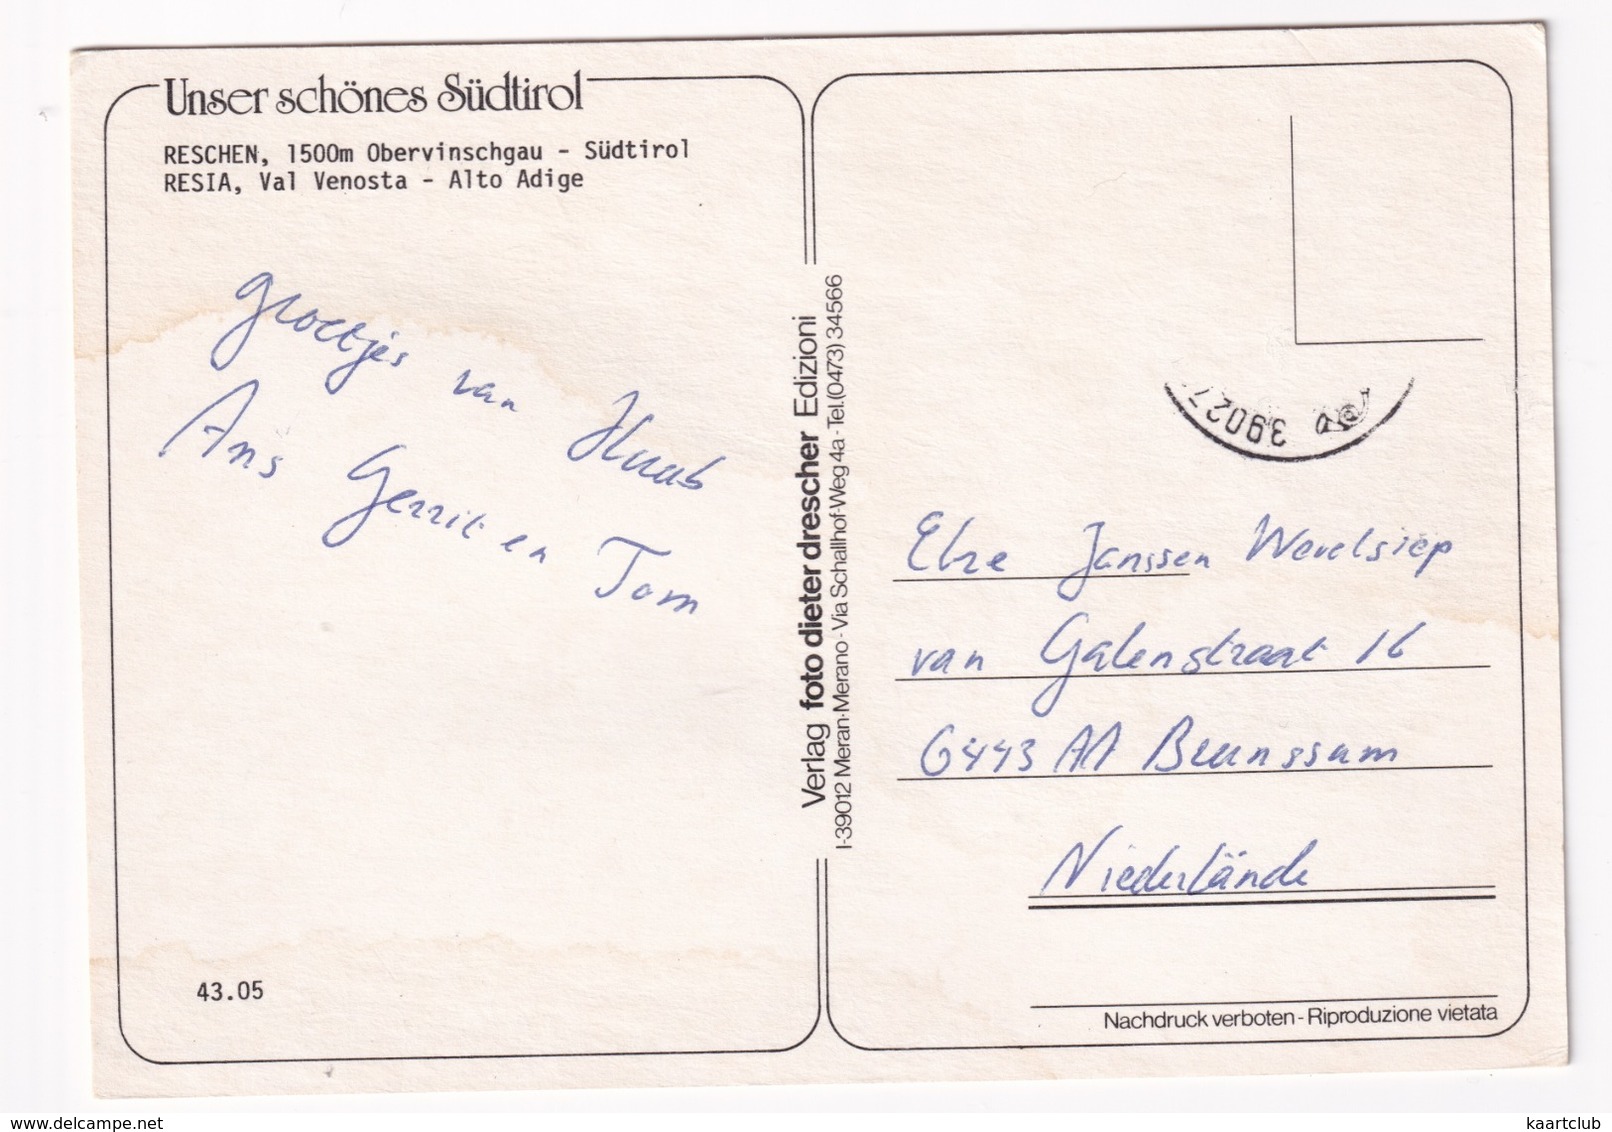 Unser schönes Südtirol
RESCHEN, 1500m Obervinschgau - Südtirol
RESIA, Val Venosta - Alto Adige
groetjes van Huub
Ans Gerrit en Tom
43.05
Verlag foto dieter drescher Edizioni
I-39012 Meran-Merano - Via Schallhof-Weg 4a - Tel. (0473) 34566
39027
Janssen
van Galenstraat 16
6443 AA Brunssum
Niederlände
Nachdruck verboten - Riproduzione vietata
www.delcampe.net
kaartclub